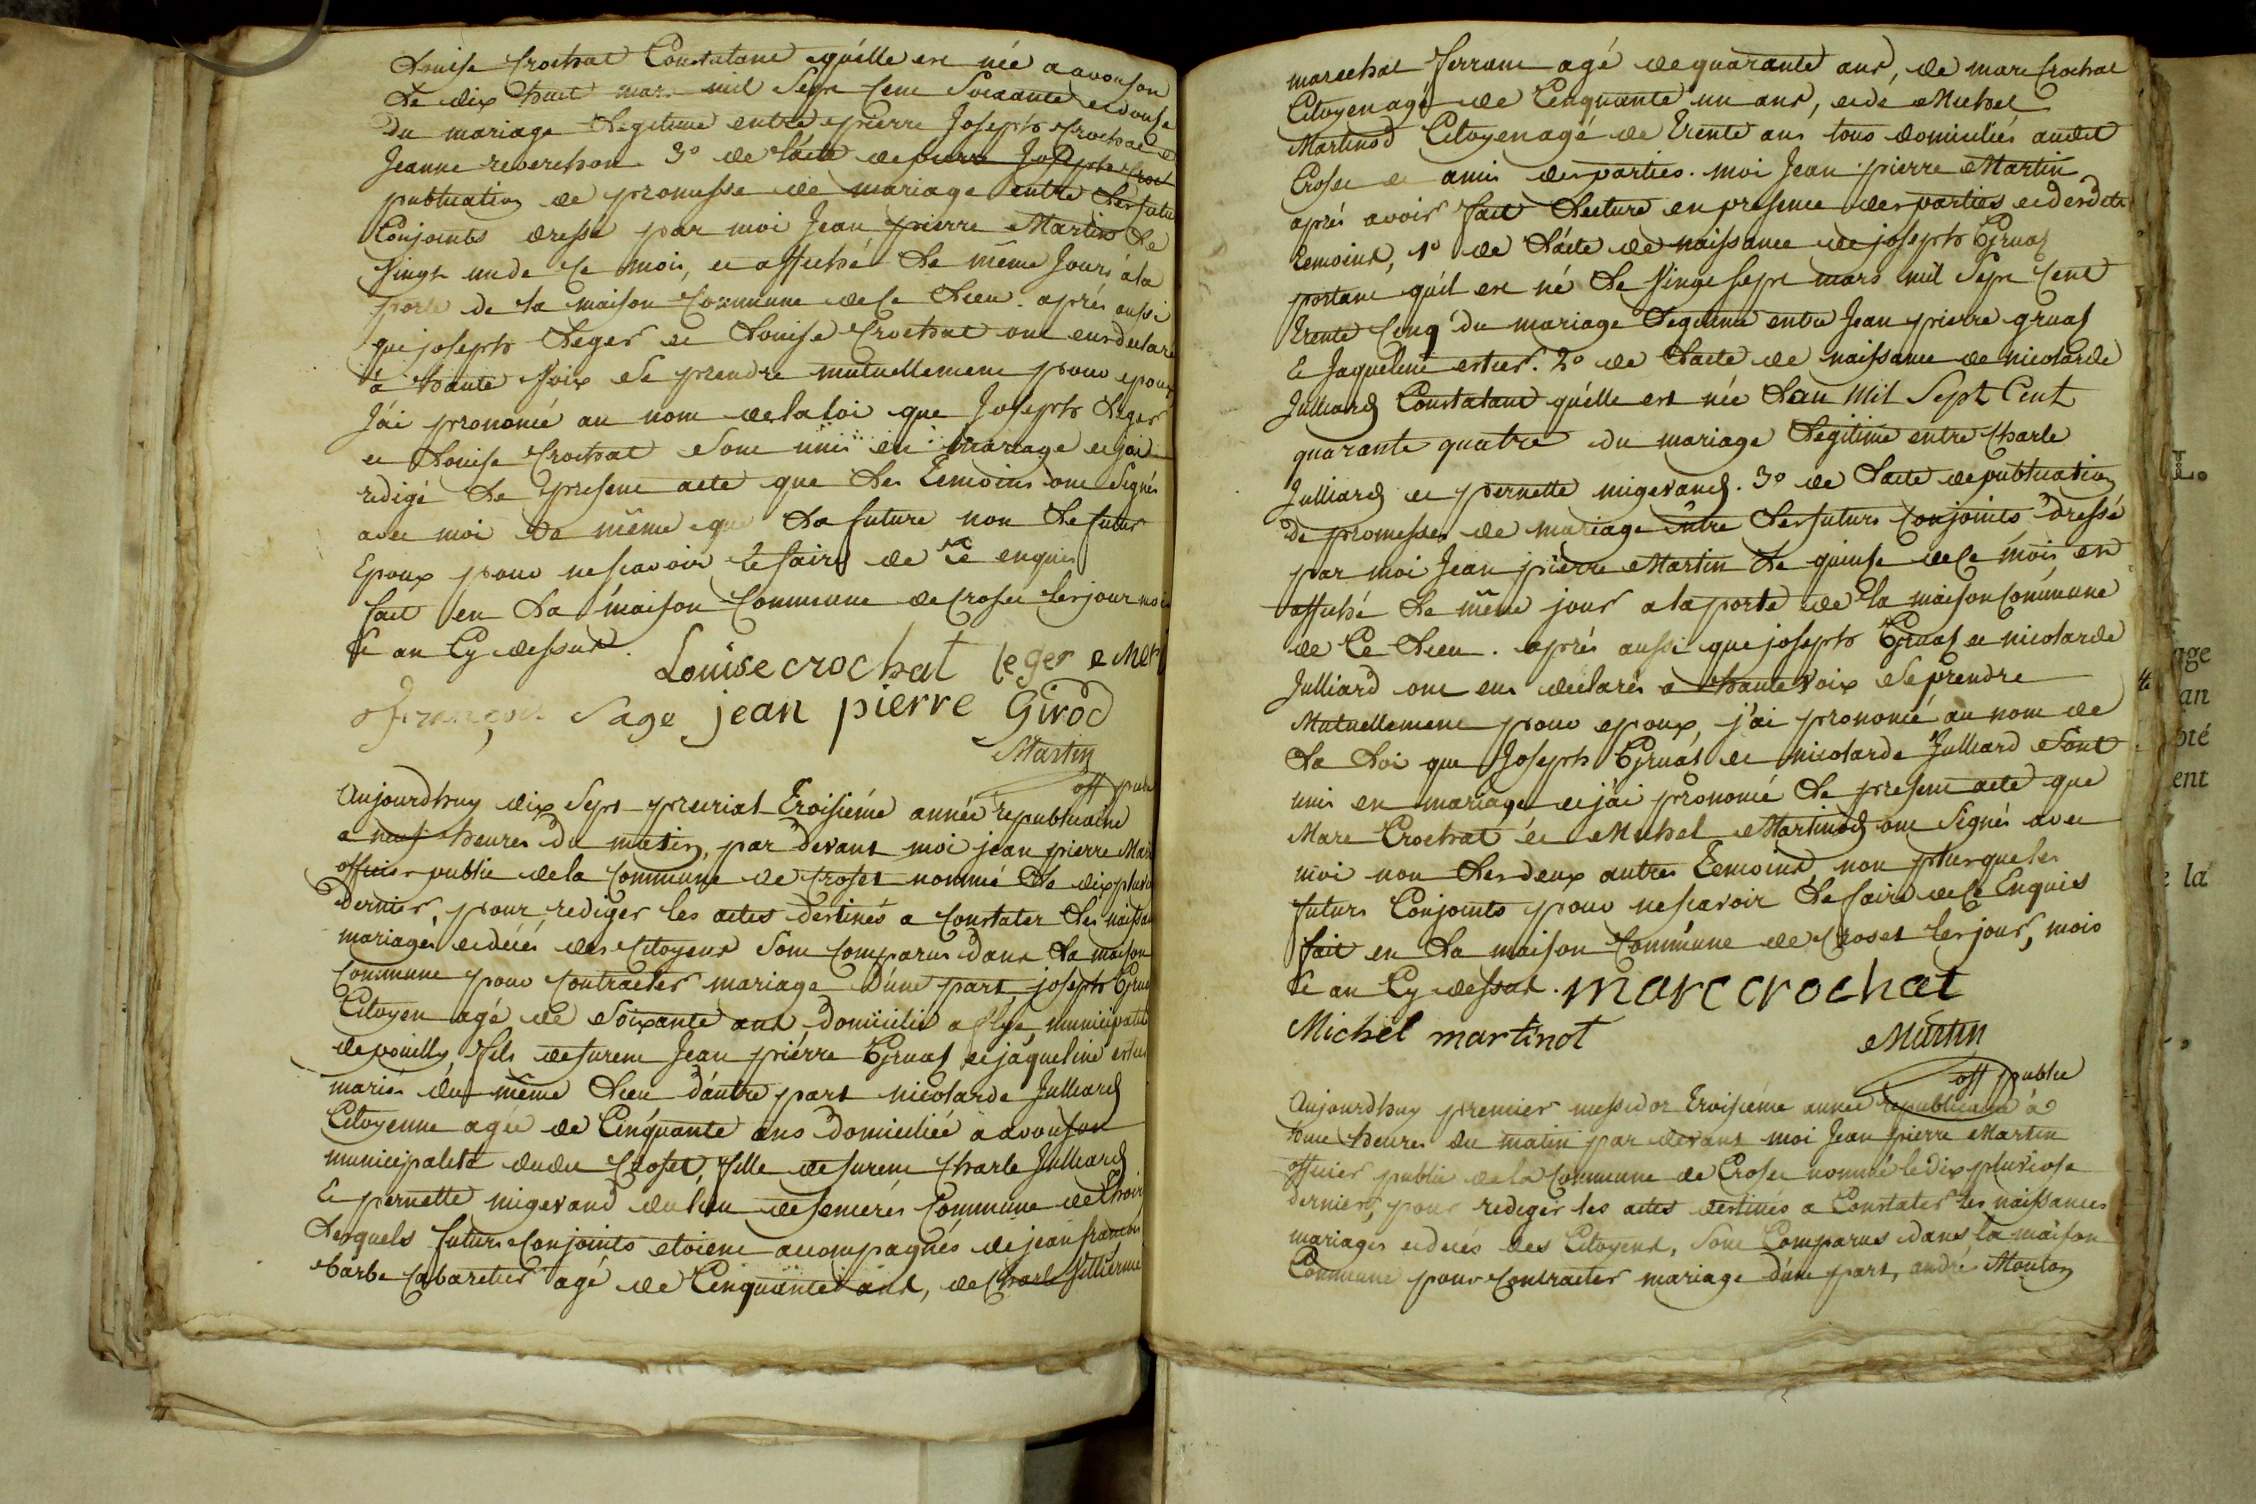 Louise Crochat Constatant qu'elle est née a avouson
Le dix huit mars mil Sept Cent Soixante et douse
du mariage Legitime entre pierre Joseph Crochat et
Jeanne reverchon 3º de l'acte de pierre Joseph Croch
publication de promesse de mariage entre Les futu
Conjoints dressé par moi Jean pierre Martin Le
Vingt un de Ce mois, et affiché Le même Jour à la
porte de la maison Commune de Ce Lieu. aprés aussi
que joseph Leger et Louise Crochat ont eus declaré
à haute Voix Se prendre mutuellement pour epoux
J'ai prononcé au nom de la loi que Joseph Leger
et Louise Crochat Sont unis en mariage et j'ai
redigé Le present acte que Les Temoins ont Signés
avec moi de même que La future non Le futur
Epoux pour ne scavoir Le faire de Ce enquis
fait en La maison Commune de Croset Les jour moi
et an Cy dessus.
Louise crochat leger emer
françois Sage jean pierre Girod
Martin
off public
Aujourdhuy dix Sept prerial Troisiéme année republicaine
a neuf heures du matin, par devant moi jean pierre Mart
officier public de la Commune de Croset nommé Le dix pluvi
dernier, pour rediger les actes destinés a Constater Les naissa
mariages et décés des Citoyens Sont Comparus dans La maison
Commune pour Contracter mariage d'une part, joseph Gruas
Citoyen agé de Soixante ans domicilié a flye, municipalité
de pouilly fils de furent Jean piérre Gruas et jaqueline estier
mariés du même Lieu d'autre part nicolarde Julliard
Citoyenne agée de Cinquante ans domiciliée a avouson
municipalité dudit Croset, fille de furent Charle Julliard
et pernette migevand du lieu de Cenieres Commune de thoiri
Lesquels futurs Conjoints etoient accompagnés de jean francois
barbe Cabaretier agé de Cinquante ans, de Charle
marechal ferrant agé de quarante ans, de marc Crochat
Citoyen agé de Cinquante un ans, et de Michel
Martinod Citoyen agé de Trente ans tous domiciliés audit
Croset et amis des parties. moi Jean pierre Martin
aprés avoir fait Lecture en presence des parties et des dits
temoins, 1º de L'acte de naissance de joseph Gruas
portant qu'il est né Le Vingt Sept mars mil Sept Cent
Trente Cinq du mariage Legitime entre Jean pierre gruas
et Jaqueline estier. 2º de L'acte de naissance de nicolarde
Julliard Constatant qu'elle est née L'an Mil Sept Cent
quarante quatre du mariage Legitime entre Charle
Julliard et pernette migevand. 3º de L'acte de publication
de promesses de mariage entre Les futurs Conjoints dressé
par moi Jean pierre Martin Le quinse de Ce mois et
affiché Le même jour a la porte de la maison Commune
de Ce Lieu. aprés aussi que joseph Gruas et nicolarde
Julliard ont eus declarés a haute voix Se prendre
Mutuellement pour epoux, j'ai prononcé au nom de
La Loi que Joseph Gruas et nicolarde Julliard Sont
unis en mariage et j'ai prononcé Le present acte que
Marc Crochat et Michel Martinod ont Signés avec
moi non Les deux autres Temoins, non plus que les
futurs Conjoints pour ne scavoir Le faire de Ce Enquis
fait en La maison Commune de Croset Les jour, mois
et an Cy dessus. marc crochat
Michel martinot Martin
off public
Aujourdhuy premier messidor Troisiéme année republicaine à
heures du matin par devant moi Jean pierre Martin
officier public de la Commune de Croset nommé le dix pluviose
dernier, pour rediger les actes destinés a Constater Les naissances
mariages et decés des Citoyens, Sont Comparus dans la maison
Commune pour Contracter mariage d'une part, andré Mouton
L.
age
an
oté
ent
é la